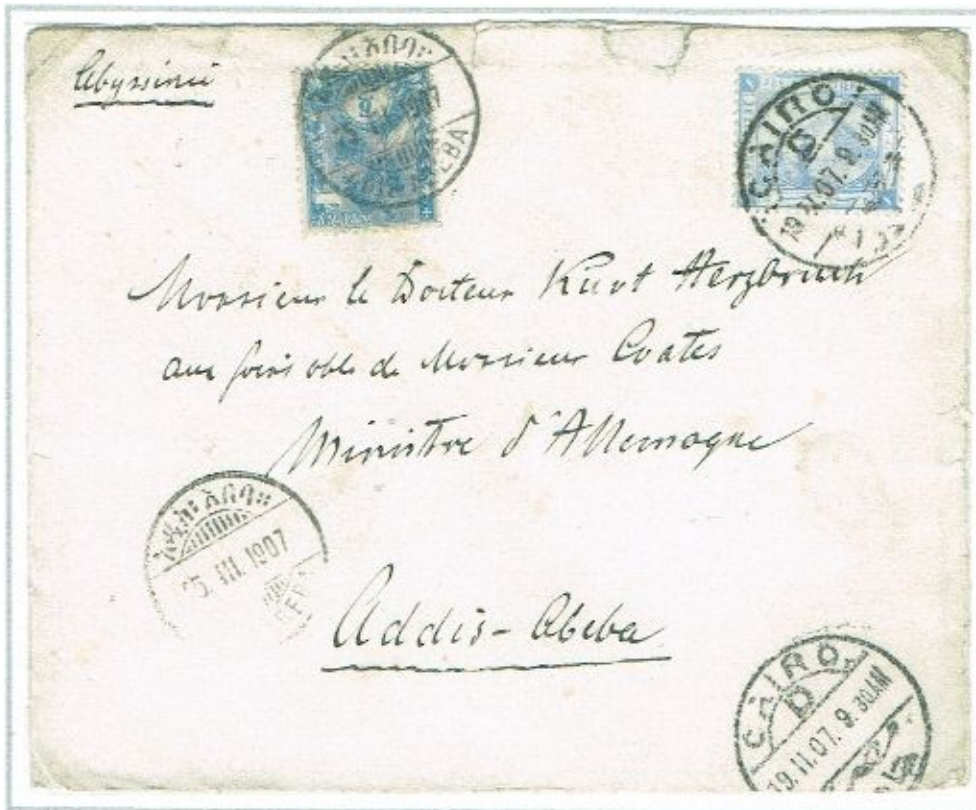 Abyssinie
አዲስ፡አበባ፡
CAIRO
D
19.II.07.9.30AM
Monsieur le Docteur Kurt Herzbruch
aux soins obl. de Monsieur Coates
Ministre d'Allemagne
አዲስ፡አበባ፡
25.III.1907
Addis-Abeba
CAIRO
D
19.II.07.9.30AM